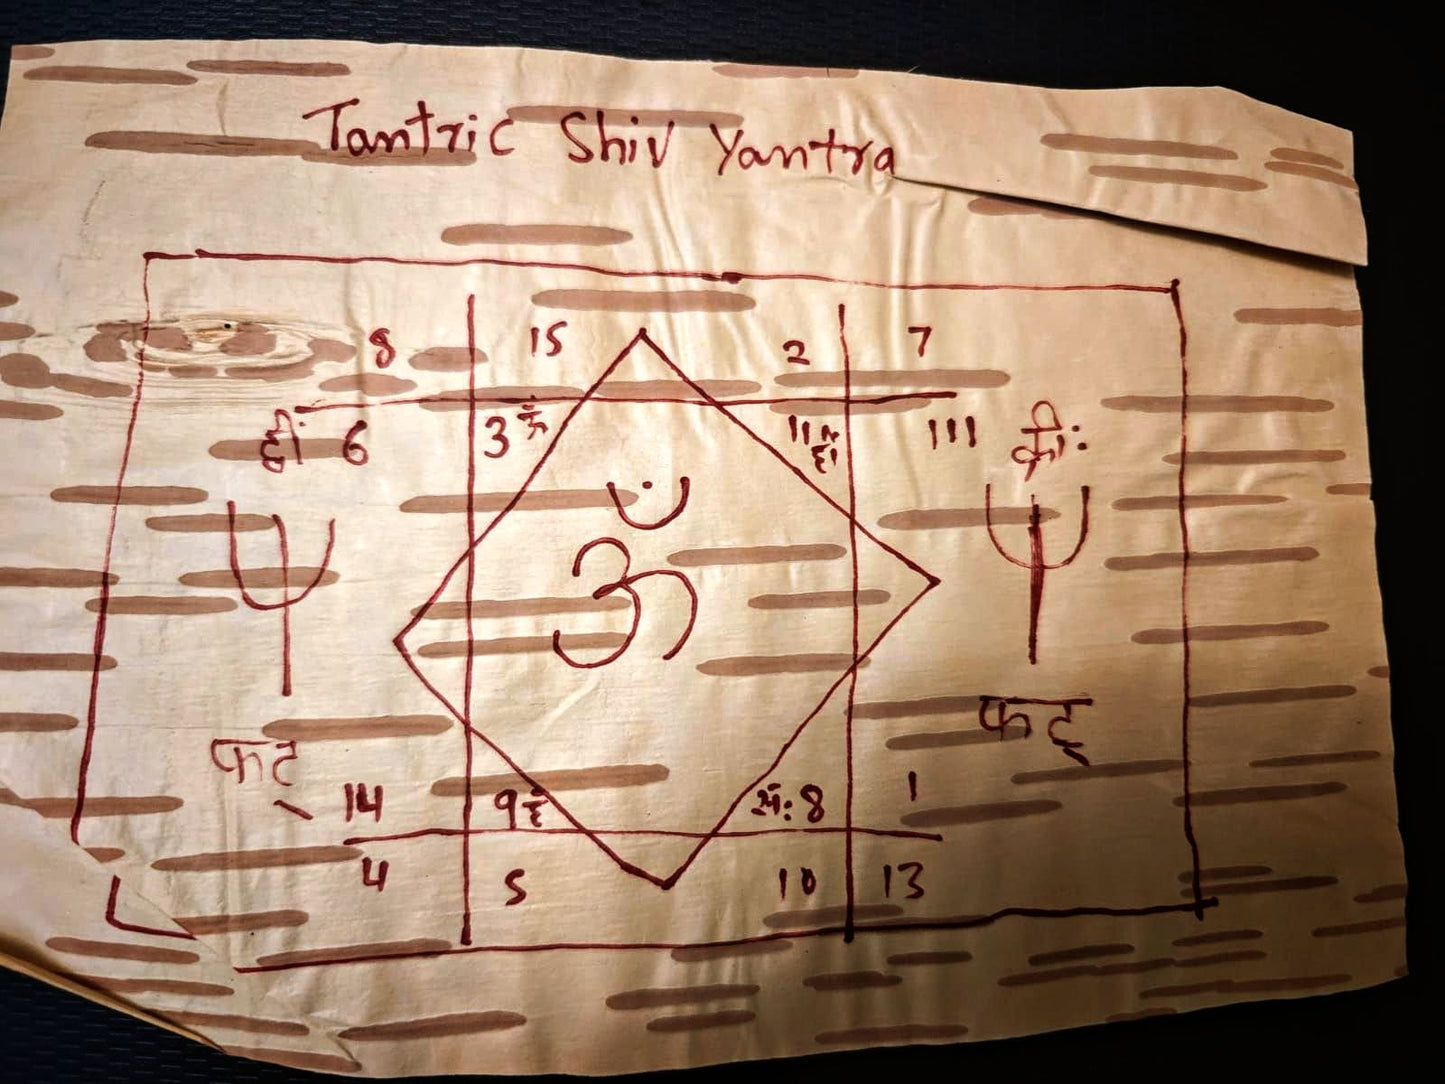 Tantric Shiv Yantra
8 15 2 7
ह्रीं 6 3 ॐ 11 111
14 9 8 1
4 5 10 13
ॐ
फट् फट्